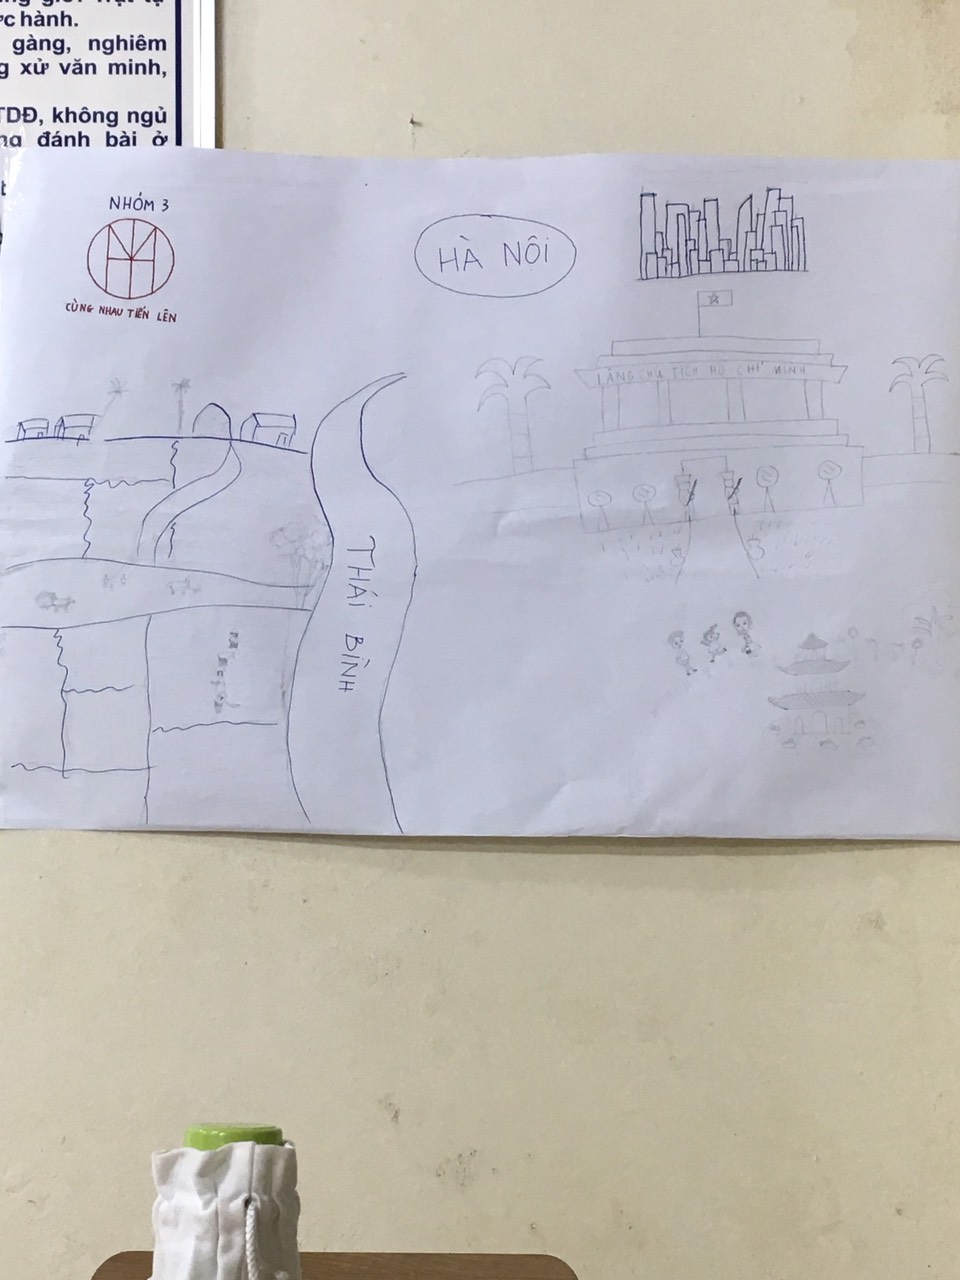 ực hành.
gàng, nghiêm
xử văn minh,
TDĐ, không ngủ
đánh bài ở
NHÓM 3
CÙNG NHAU TIẾN LÊN
HÀ NỘI
LĂNG CHỦ TỊCH HỒ CHÍ MINH
THÁI BÌNH